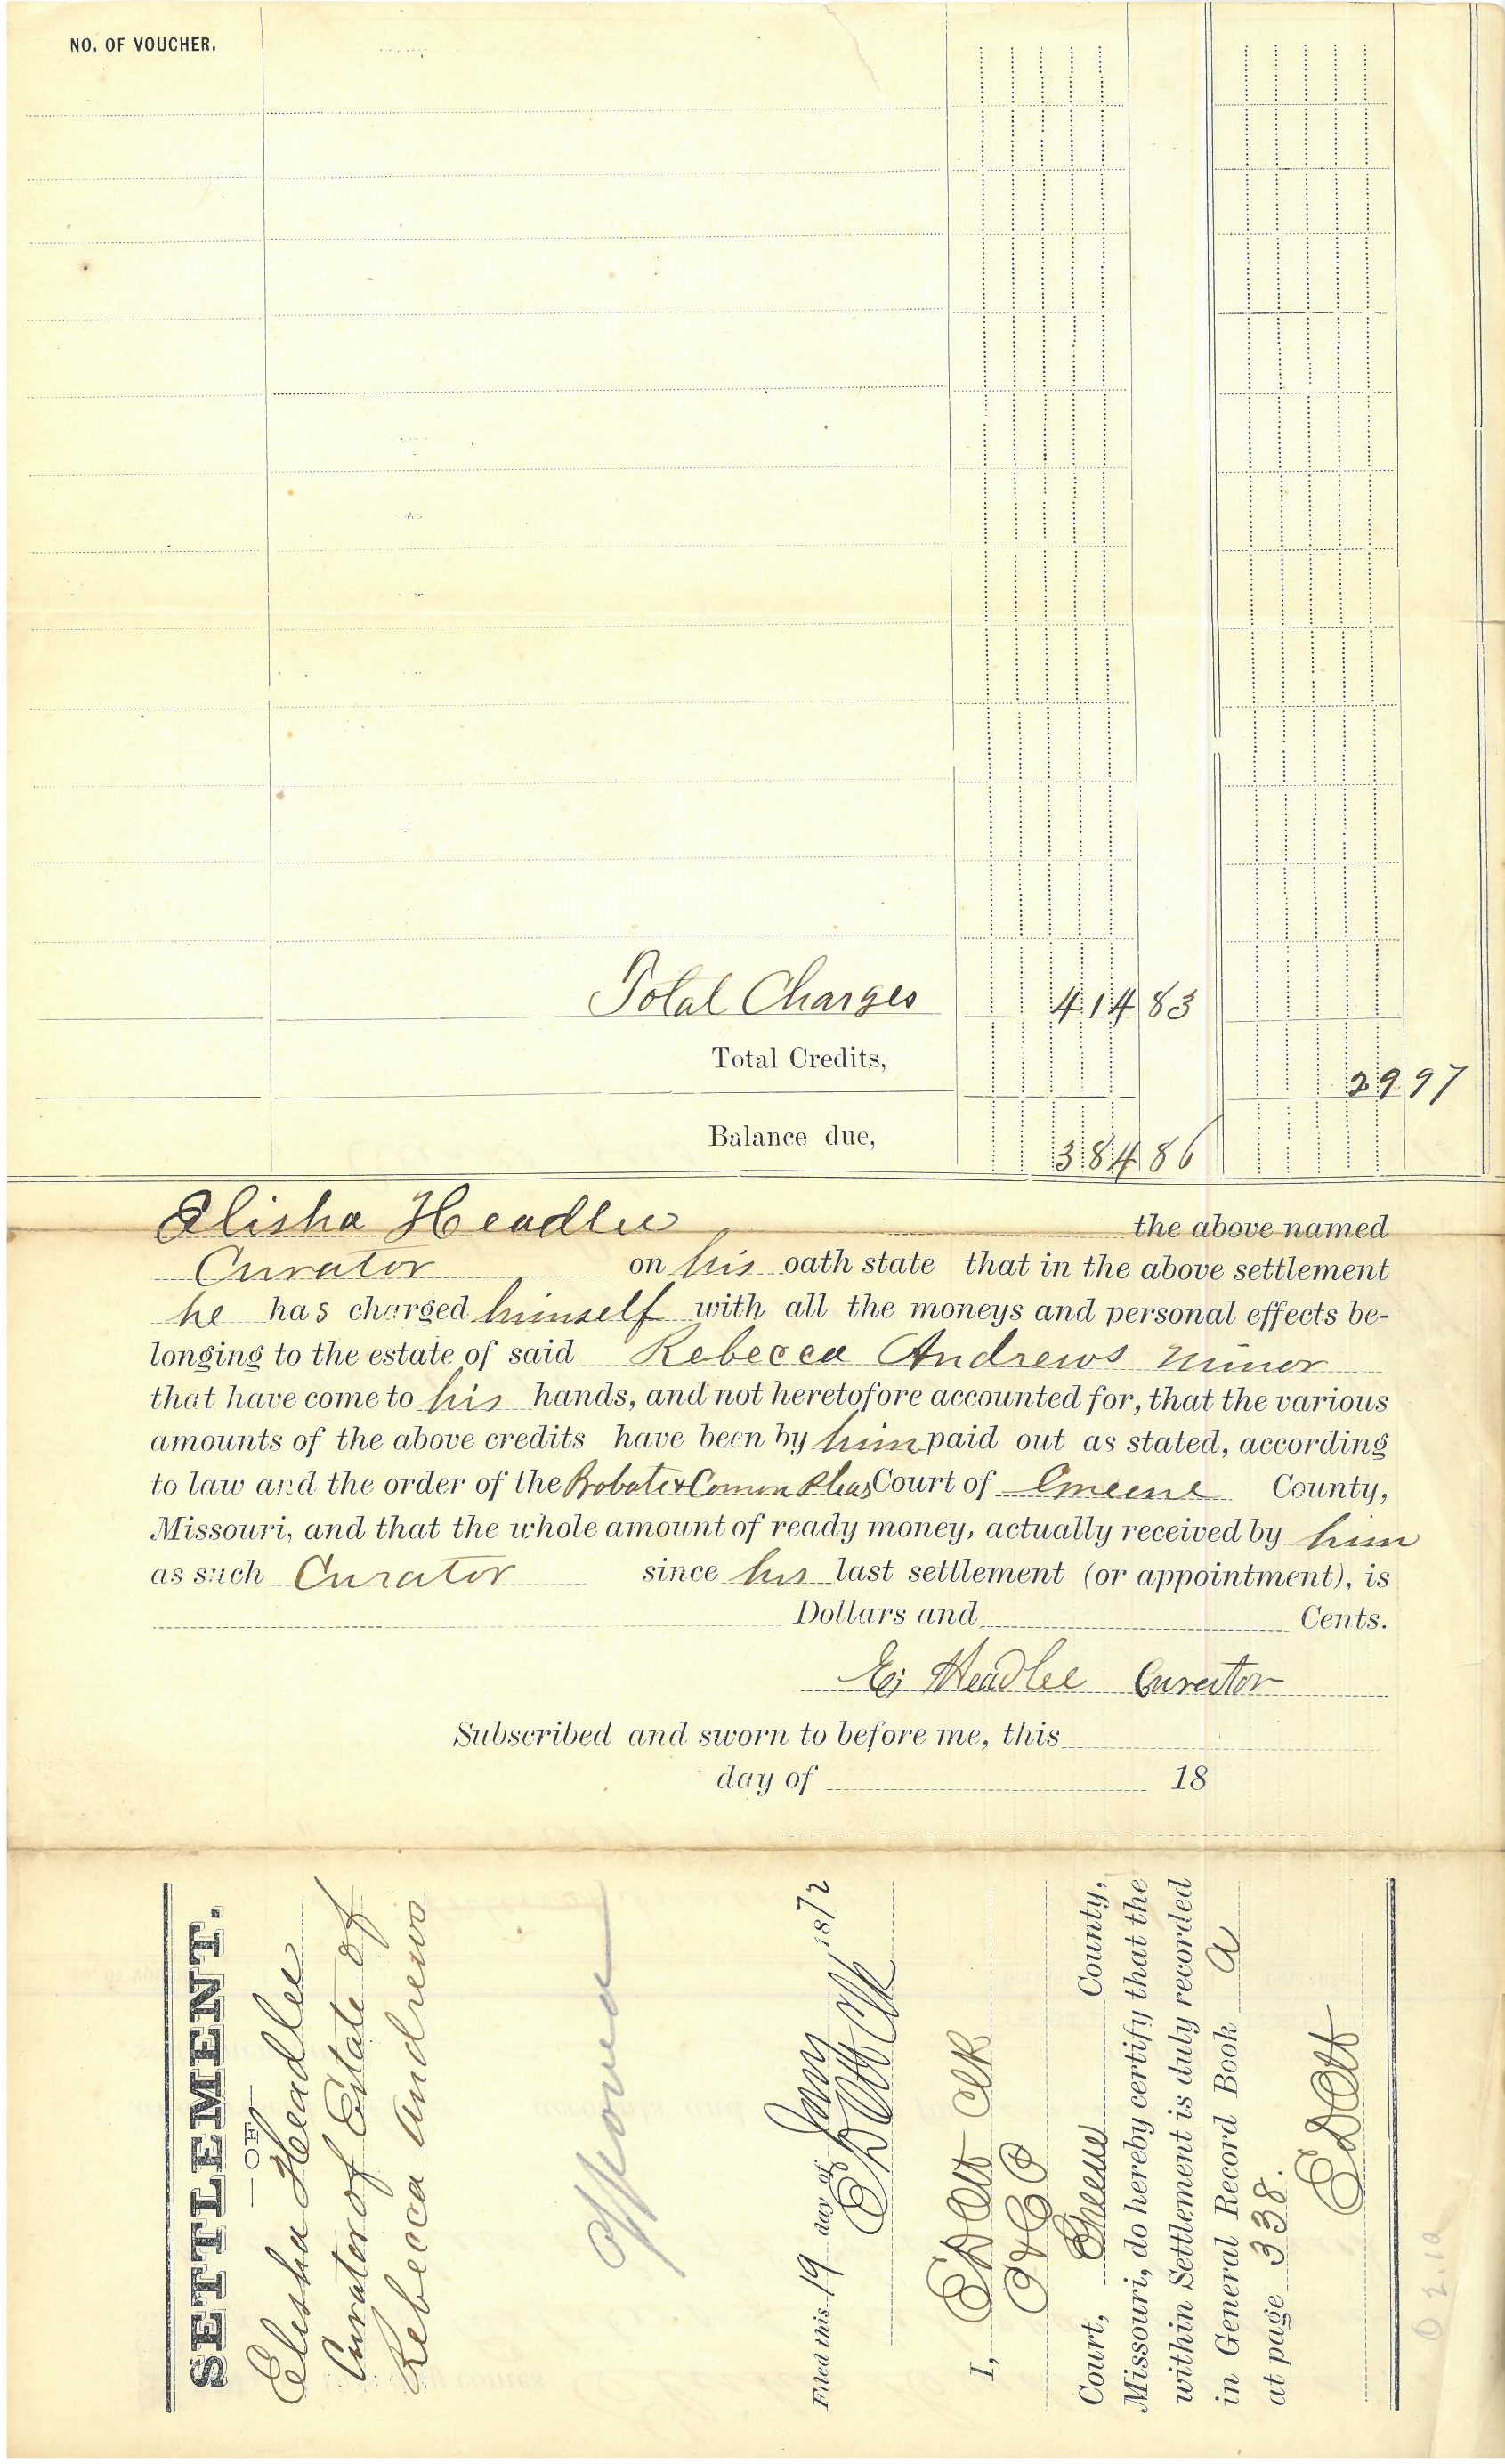 NO. OF VOUCHER.
Total Charges 414 83
Total Credits, 29 97
Balance due, 384 86
Elisha Headlee the above named
Curator on his oath state that in the above settlement
he has charged himself with all the moneys and personal effects be-
longing to the estate of said Rebecca Andrews minor
that have come to his hands, and not heretofore accounted for, that the various
amounts of the above credits have been by him paid out as stated, according
to law and the order of the Probate & Comon Pleas Court of Greene County,
Missouri, and that the whole amount of ready money, actually received by him
as such Curator since his last settlement (or appointment), is
Dollars and Cents.
E; Headlee Curator
Subscribed and sworn to before me, this
day of 18
SETTLEMENT.
—OF—
Elisha Headlee
Curator of Estate of
Rebecca Andrews
Approved
Filed this 19 day of Jany 1872
E D Ott Clk
I, E D Ott Clk
P & C P
Court, Greene County,
Missouri, do hereby certify that the
within Settlement is duly recorded
in General Record Book A
at page 338.
E D Ott